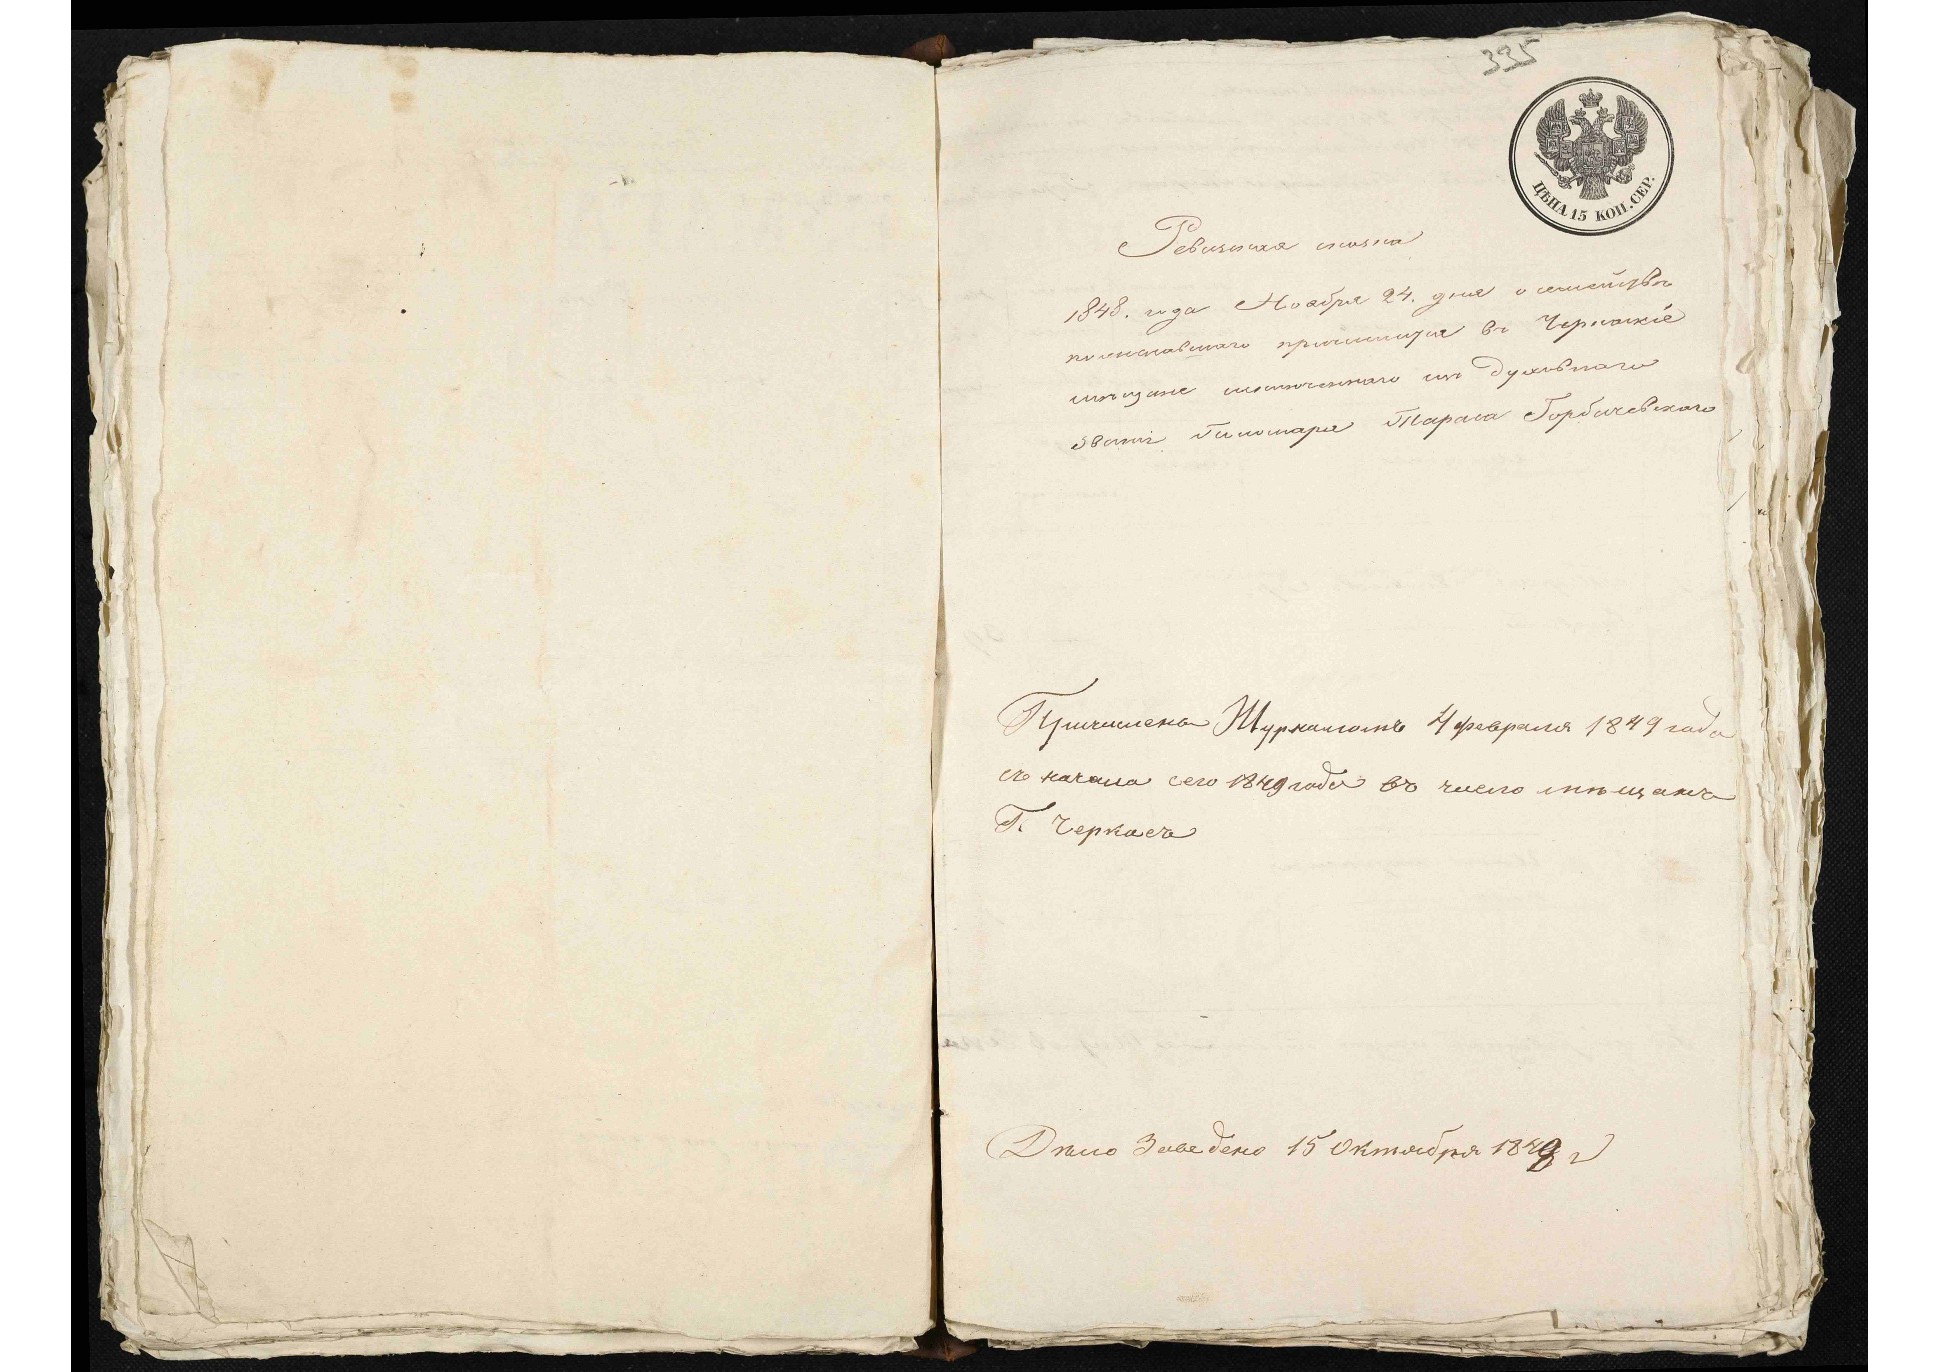 335
ЦѢНА 15 КОП. СЕР.
Ревизская сказка
1848. года Ноября 24. дня о семействѣ
пожелавшаго причислится въ Черкаскіе
мѣщане исключеннаго изъ духовнаго
званія Пономаря Тараса Горбачевскаго
Причислена Журналомъ 4 февраля 1849 года
съ начала сего 1849 года въ число мѣщанъ
Г. Черкасъ
Дѣло Заведено 15 Октября 1848 г